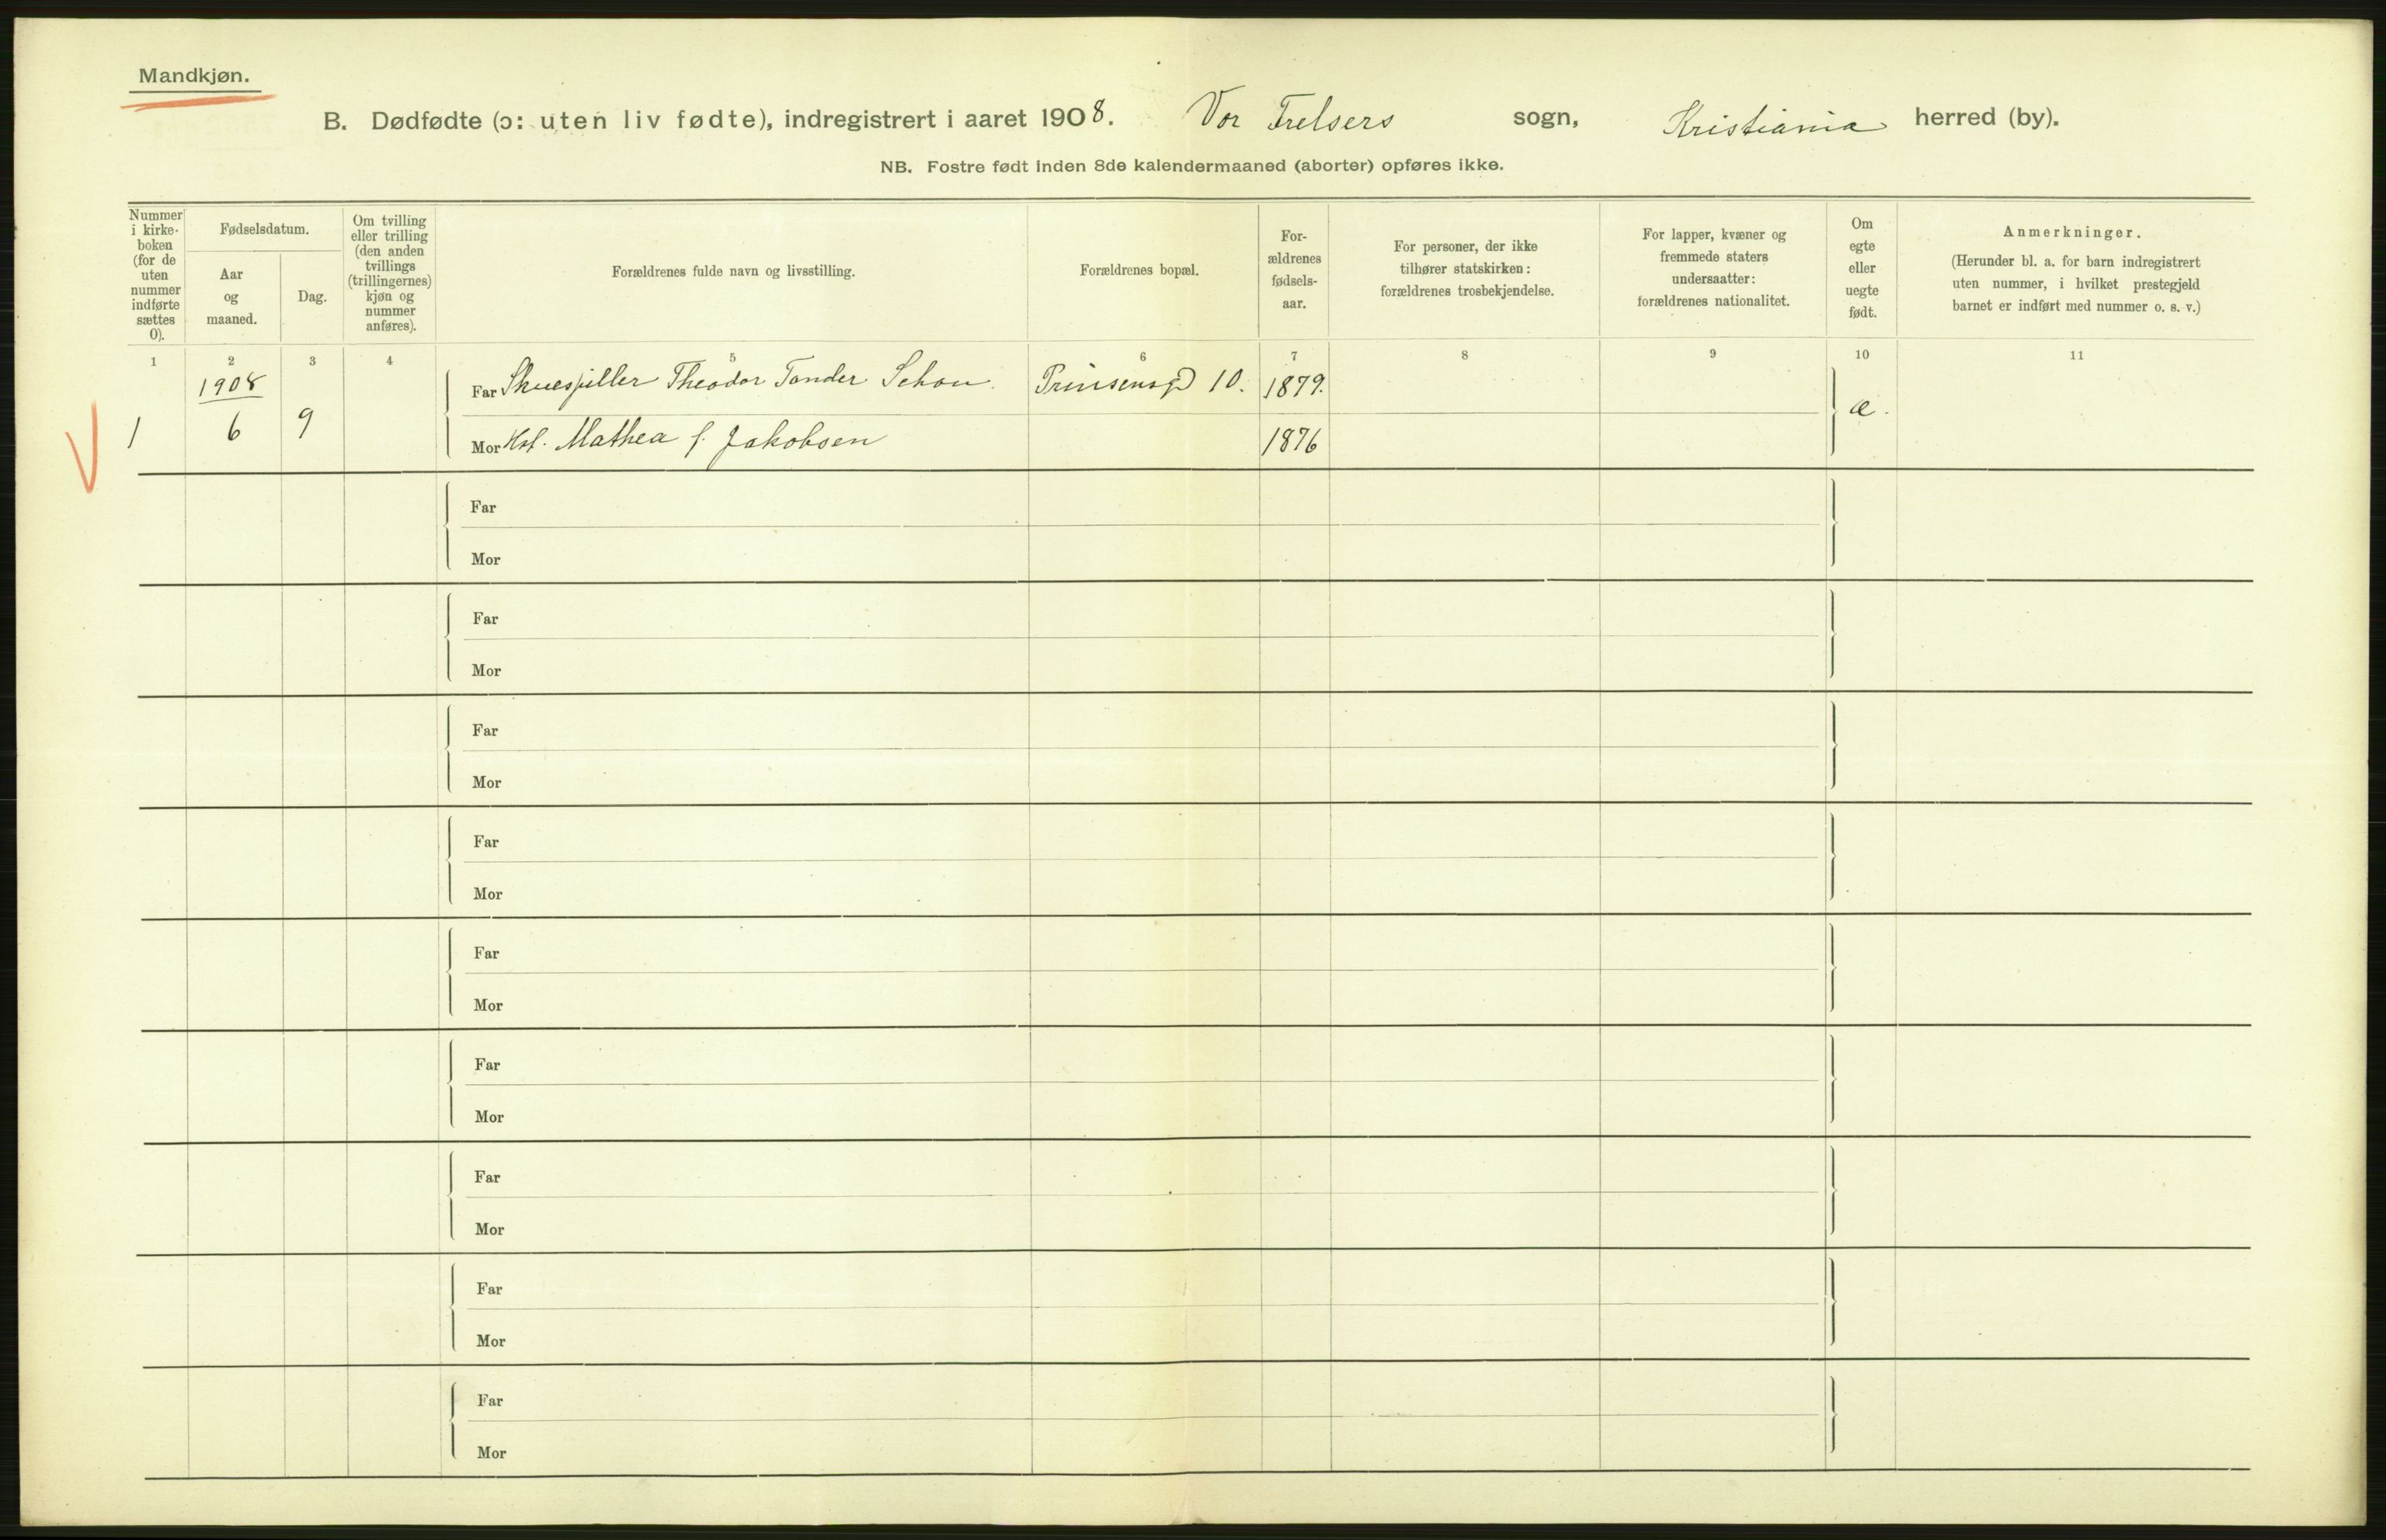 Mandkjøn.
B. Dødfødte (ɔ: uten liv fødte), indregistrert i aaret 1908. Vor Frelsers sogn, Kristiania herred (by).
NB. Fostre født inden 8de kalendermaaned (aborter) opføres ikke.
Nummer
i kirke-
boken
(for de
uten
nummer
indførte
sættes
0).
Fødselsdatum.
Aar
og
maaned.
Dag.
Om tvilling
eller trilling
(den anden
tvillings
(trillingernes)
kjøn og
nummer
anføres).
Forældrenes fulde navn og livsstilling.
Forældrenes bopæl.
For-
ældrenes
fødsels-
aar.
For personer, der ikke
tilhører statskirken:
forældrenes trosbekjendelse.
For lapper, kvæner og
fremmede staters
undersaatter:
forældrenes nationalitet.
Om
egte
eller
uegte
født.
Anmerkninger.
(Herunder bl. a. for barn indregistrert
uten nummer, i hvilket prestegjeld
barnet er indført med nummer o. s. v.)
1 2 3 4 5 6 7 8 9 10 11
1908
Far Skuespiller Theodor Tønder Schou. Prinsensgd 10. 1879.
1 6 9 æ.
Mor Hst. Mathea f. Jakobsen 1876
Far
Mor
Far
Mor
Far
Mor
Far
Mor
Far
Mor
Far
Mor
Far
Mor
Far
Mor
Far
Mor